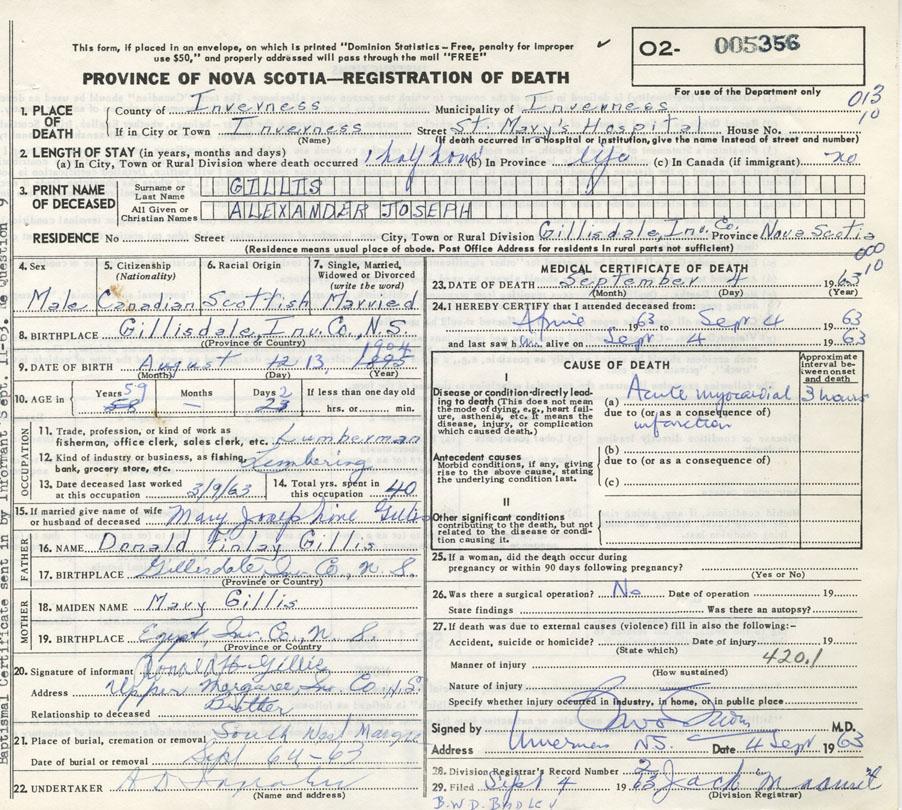 This form, if placed in an envelope, on which is printed "Dominion Statistics—Free, penalty for improper
use $50," and properly addressed will pass through the mail "FREE"
O2- 005356
PROVINCE OF NOVA SCOTIA—REGISTRATION OF DEATH
For use of the Department only
013
10
1. PLACE OF DEATH
County of Inverness Municipality of Inverness
If in City or Town Inverness Street St. Mary's Hospital House No.
(Name) (If death occurred in a hospital or institution, give the name instead of street and number)
2. LENGTH OF STAY (in years, months and days)
(a) In City, Town or Rural Division where death occurred 1 half hour (b) In Province Life (c) In Canada (if immigrant) no
3. PRINT NAME OF DECEASED
Surname or Last Name GILLIS
All Given or Christian Names ALEXANDER JOSEPH
RESIDENCE No Street City, Town or Rural Division Gillisdale, Inv. Co. Province Nova Scotia
(Residence means usual place of abode. Post Office Address for residents in rural parts not sufficient)
000
10
4. Sex 5. Citizenship (Nationality) 6. Racial Origin 7. Single, Married, Widowed or Divorced (write the word)
Male Canadian Scottish Married
8. BIRTHPLACE Gillisdale, Inv. Co., N.S.
(Province or Country)
1904
9. DATE OF BIRTH August 12 13, 1895
(Month) (Day) (Year)
10. AGE in Years 59 58 Months - Days 2 23 If less than one day old
hrs. or min.
OCCUPATION
11. Trade, profession, or kind of work as
fisherman, office clerk, sales clerk, etc. Lumberman
12. Kind of industry or business, as fishing,
bank, grocery store, etc. Lumbering
13. Date deceased last worked
at this occupation 3/9/63
14. Total yrs. spent in
this occupation 40
15. If married give name of wife
or husband of deceased Mary Josephine Gillis
FATHER
16. NAME Donald Finlay Gillis
17. BIRTHPLACE Gillisdale, Inv. Co., N. S.
(Province or Country)
MOTHER
18. MAIDEN NAME Mary Gillis
19. BIRTHPLACE Egypt, Inv. Co., N. S.
(Province or Country)
20. Signature of informant Donald H. Gillis
Address Upper Margaree Inv. Co. N.S.
Relationship to deceased Brother
21. Place of burial, cremation or removal South West Margaree
Date of burial or removal Sept 6th-63
22. UNDERTAKER
(Name and address)
MEDICAL CERTIFICATE OF DEATH
23. DATE OF DEATH September 4 1963
(Month) (Day) (Year)
24. I HEREBY CERTIFY that I attended deceased from:
April 1963 to Sept 4 1963
and last saw him alive on Sept 4 1963
CAUSE OF DEATH
Approximate interval between onset and death
I
Disease or condition directly leading to death (This does not mean the mode of dying, e.g., heart failure, asthenia, etc. It means the disease, injury, or complication which caused death.)
(a) Acute myocardial 3 hours
due to (or as a consequence of)
infarction
Antecedent causes
Morbid conditions, if any, giving rise to the above cause, stating the underlying condition last.
(b)
due to (or as a consequence of)
(c)
II
Other significant conditions
contributing to the death, but not related to the disease or condition causing it.
25. If a woman, did the death occur during
pregnancy or within 90 days following pregnancy?
(Yes or No)
26. Was there a surgical operation? No Date of operation 19
State findings Was there an autopsy?
27. If death was due to external causes (violence) fill in also the following:-
Accident, suicide or homicide? Date of injury 19
(State which)
420.1
Manner of injury
(How sustained)
Nature of injury
Specify whether injury occurred in industry, in home, or in public place
Signed by M.D.
Address Inverness NS. Date 4 Sept 1963
28. Division Registrar's Record Number 2
29. Filed Sept 4 1963 Jack
(Division Registrar)
B.W.D. BADLEY
Baptismal Certificate sent in by Informant Sept. 11-63. re Question 9